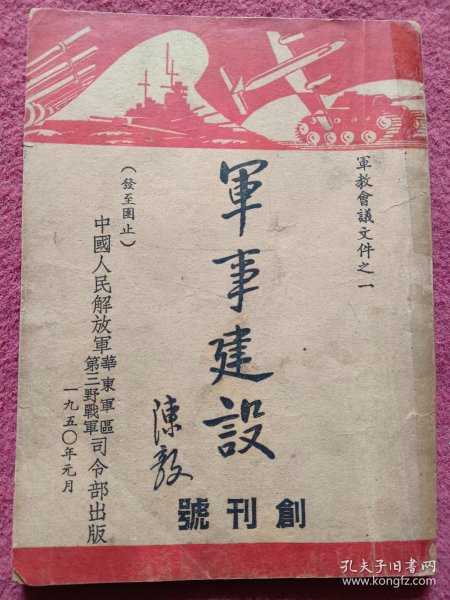 軍教會議文件之一
軍事建設
陳毅
創刊號
（發至團止）
中國人民解放軍華東軍區第三野戰軍司令部出版
一九五〇年元月
孔夫子旧书网
www.kongfz.com